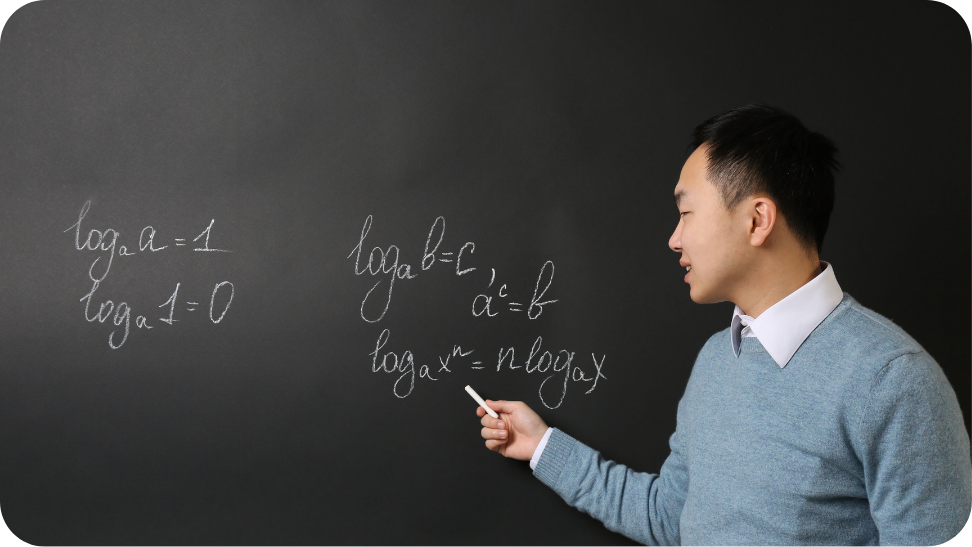 logₐ a = 1
logₐ 1 = 0
logₐ b = c,
aᶜ = b
logₐ xⁿ = n logₐ x